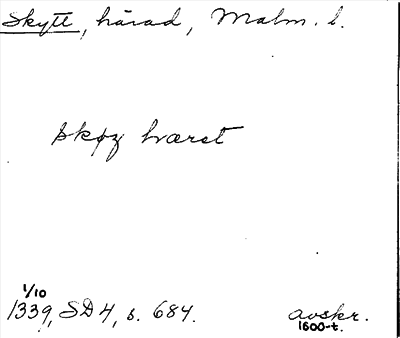 Skytt, härad, Malm. l.
skøz hæret
1/10
1339, SD 4, s. 684.
avskr.
1600-t.